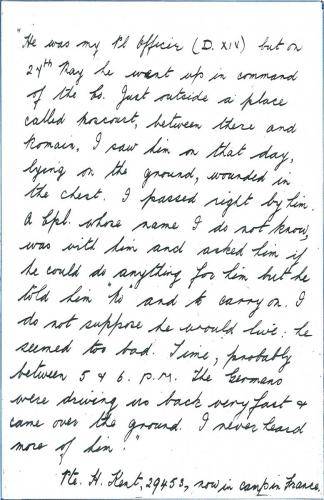 "He was my Pl Officer (D. XIV) but on
27th May he went up in command
of the Co. Just outside a place
called Norcourt, between there and
Romain, I saw him on that day,
lying on the ground, wounded in
the chest. I passed right by him.
A Cpl. whose name I do not know,
was with him and asked him if
he could do anything for him but he
told him "No" and to carry on. I
do not suppose he would live. he
seemed too bad. Time, probably
between 5 & 6. P.M. The Germans
were driving us back very fast &
came over the ground. I never heard
more of him."
Pte. H. Kent, 29453, now in camp in France.